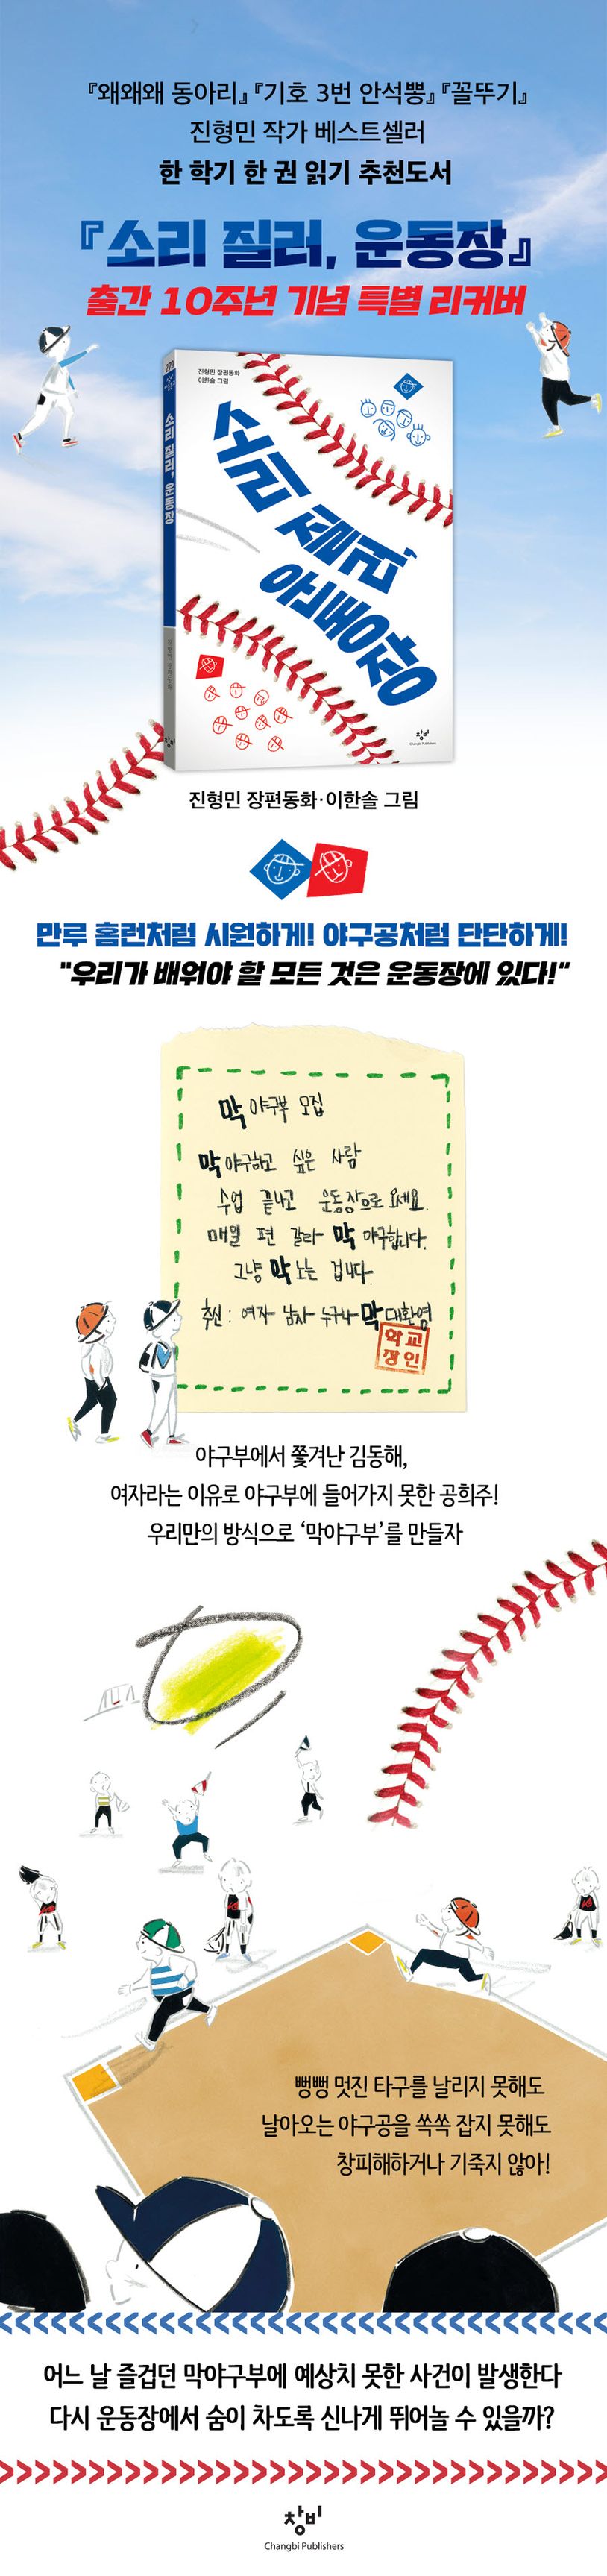 『왜왜왜 동아리』『기호 3번 안석뽕』『꼴뚜기』
진형민 작가 베스트셀러
한 학기 한 권 읽기 추천도서
『소리 질러, 운동장』
출간 10주년 기념 특별 리커버
진형민 장편동화
이한솔 그림
소리 질러, 운동장
소리 질러, 운동장
진형민 장편동화
창비
창비
Changbi Publishers
진형민 장편동화·이한솔 그림
만루 홈런처럼 시원하게! 야구공처럼 단단하게!
"우리가 배워야 할 모든 것은 운동장에 있다!"
막 야구부 모집
막 야구하고 싶은 사람
수업 끝나고 운동장으로 오세요.
매일 편 갈라 막 야구합니다.
그냥 막 노는 겁니다.
추신 : 여자 남자 누구나 막 대환영
학교
장인
야구부에서 쫓겨난 김동해,
여자라는 이유로 야구부에 들어가지 못한 공희주!
우리만의 방식으로 ‘막야구부’를 만들자
뻥뻥 멋진 타구를 날리지 못해도
날아오는 야구공을 쏙쏙 잡지 못해도
창피해하거나 기죽지 않아!
어느 날 즐겁던 막야구부에 예상치 못한 사건이 발생한다
다시 운동장에서 숨이 차도록 신나게 뛰어놀 수 있을까?
창비
Changbi Publishers